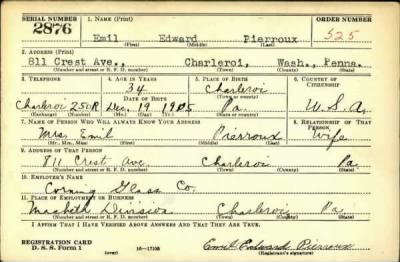 SERIAL NUMBER
1. Name (Print)
ORDER NUMBER
2876
Emil Edward Pierroux
525
(First) (Middle) (Last)
2. Address (Print)
811 Crest Ave., Charleroi, Wash., Penna.
(Number and street or R. F. D. number) (Town) (County) (State)
3. Telephone
4. Age in Years
5. Place of Birth
6. Country of Citizenship
34
Charleroi
Date of Birth
(Town or county)
Charleroi 250R Dec. 19 1905 Pa. U.S.A.
(Exchange) (Number) (Mo.) (Day) (Yr.) (State or country)
7. Name of Person Who Will Always Know Your Address
8. Relationship of That Person
Mrs. Emil Pierroux Wife
(Mr., Mrs., Miss) (First) (Middle) (Last)
9. Address of That Person
811 Crest Ave Charleroi Pa
(Number and street or R. F. D. number) (Town) (County) (State)
10. Employer's Name
Corning Glass Co.
11. Place of Employment or Business
Macbeth Division Charleroi Pa.
(Number and street or R. F. D. number) (Town) (County) (State)
I Affirm That I Have Verified Above Answers and That They Are True.
REGISTRATION CARD
D. S. S. Form 1
(over)
16—17105
Emil Edward Pierroux
(Registrant's signature)